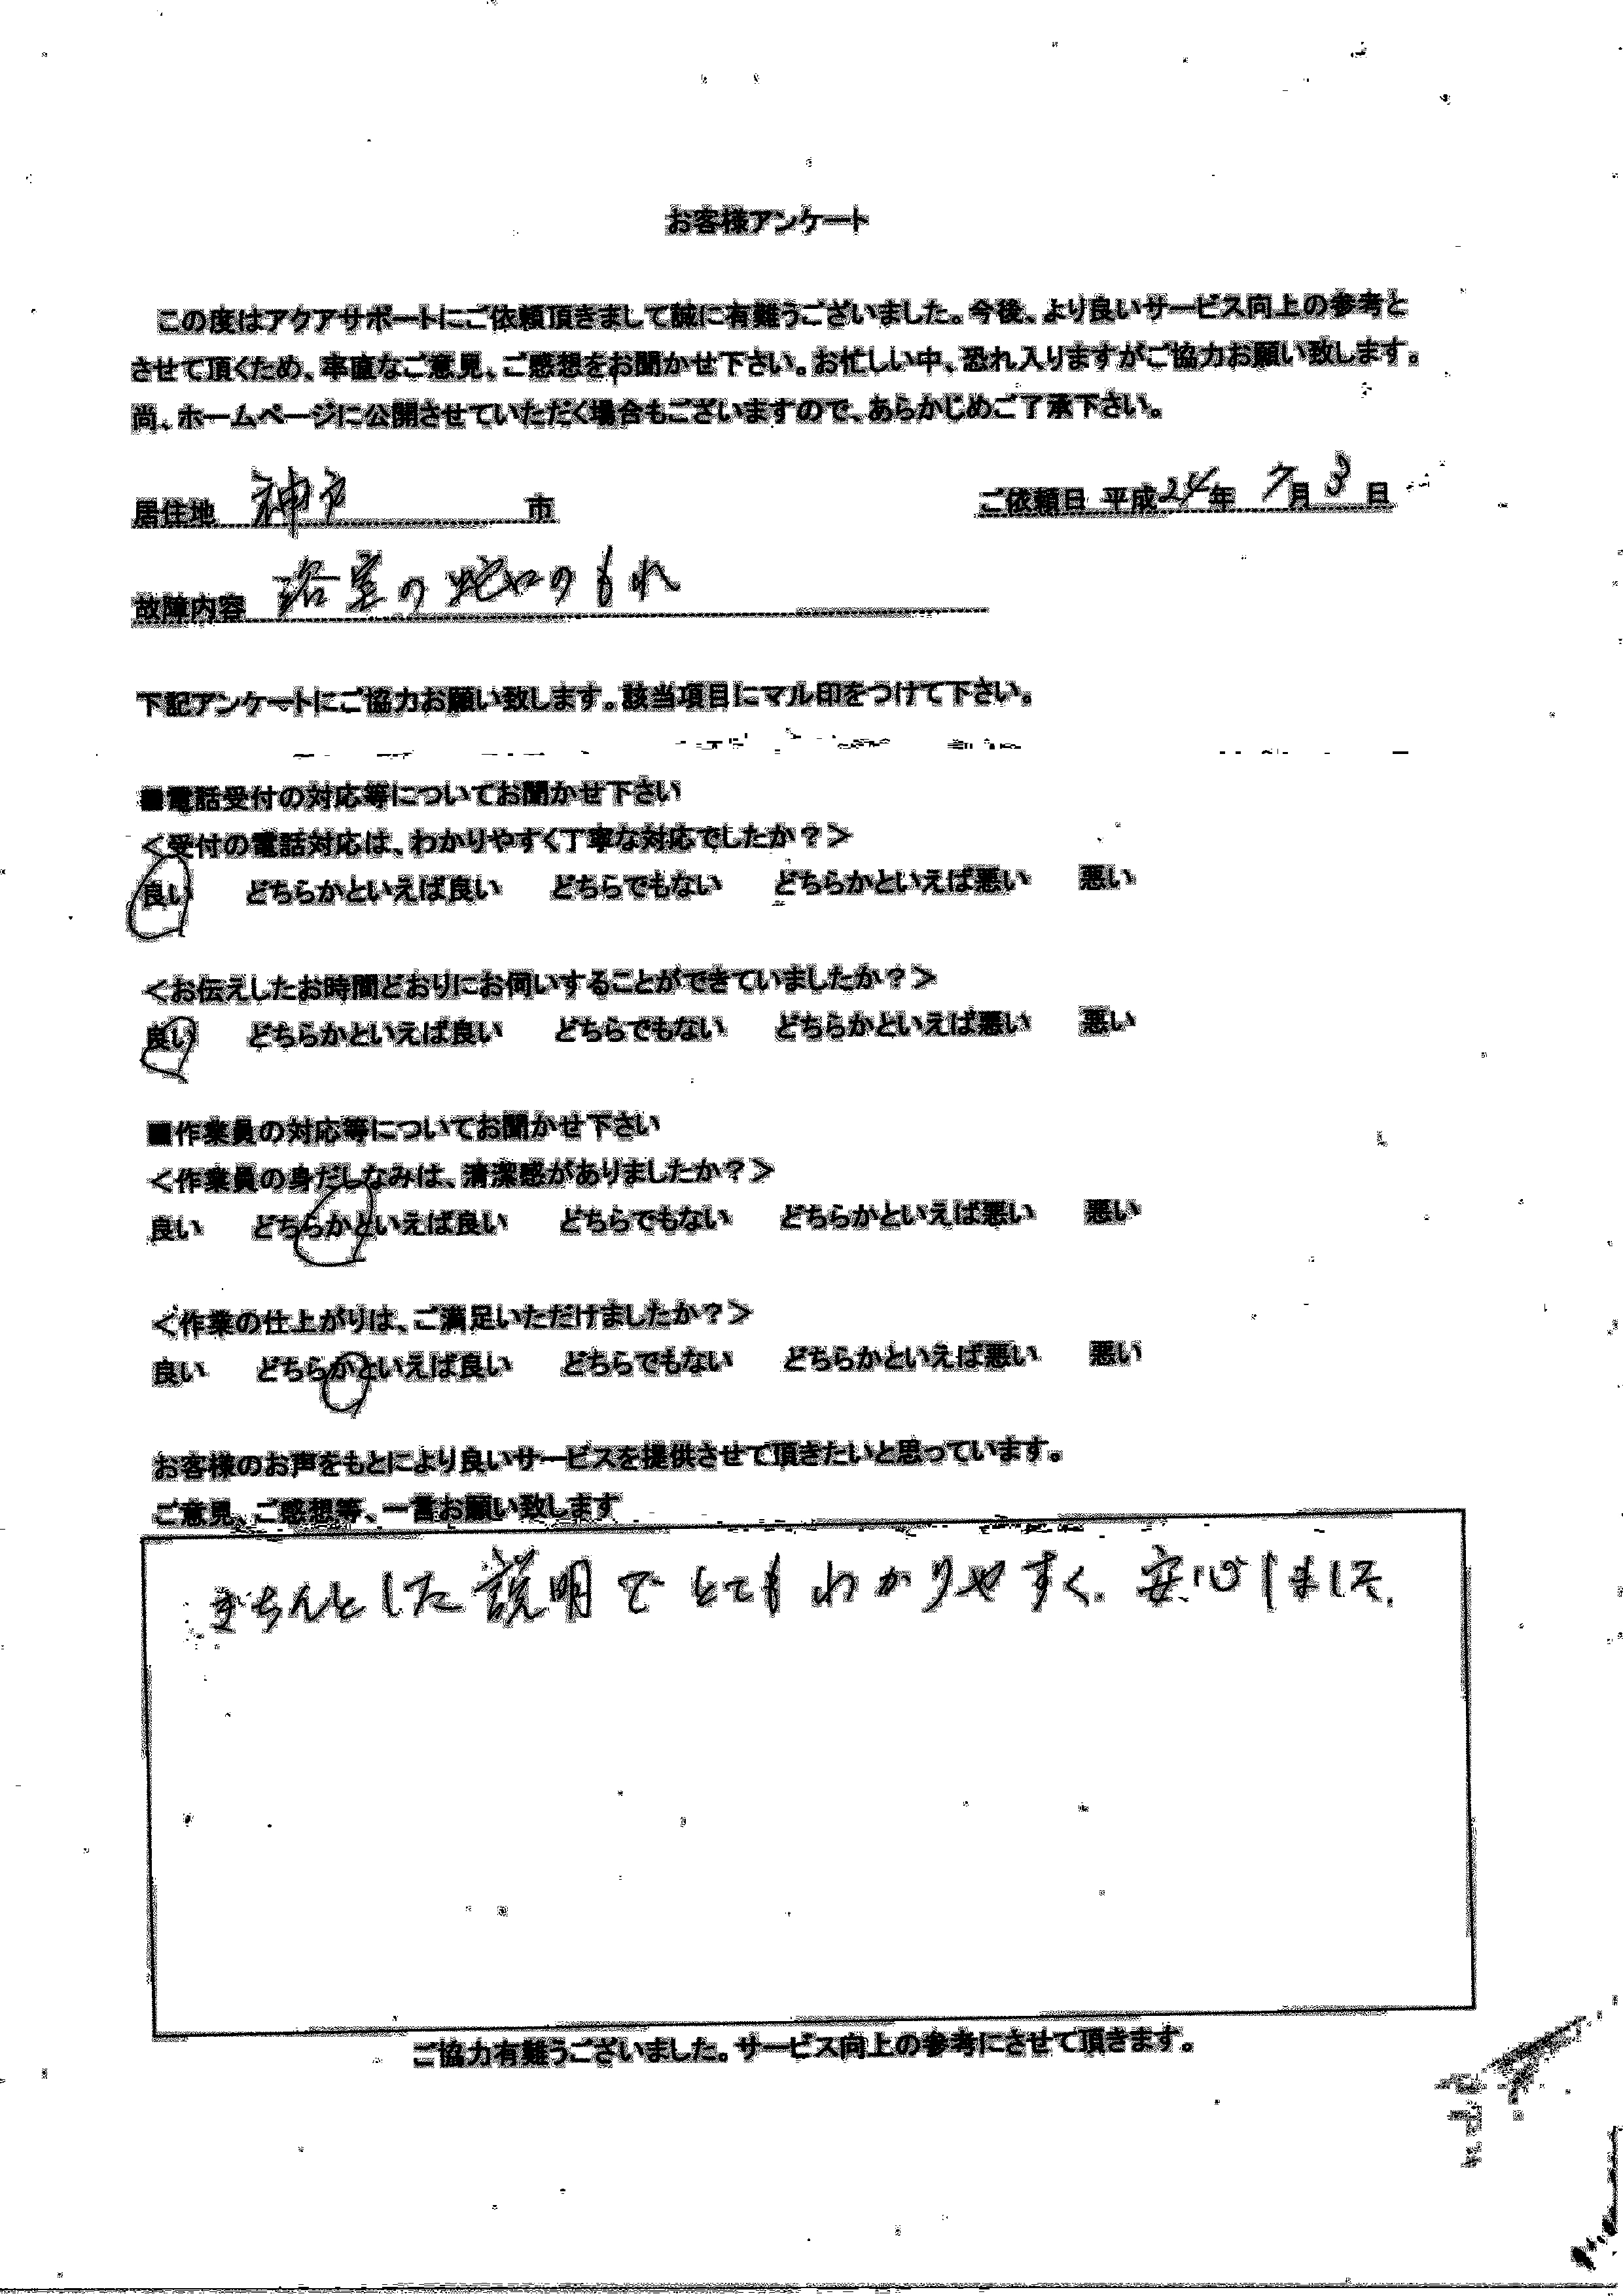 お客様アンケート
この度はアクアサポートにご依頼頂きまして誠に有難うございました。今後、より良いサービス向上の参考と
させて頂くため、率直なご意見、ご感想をお聞かせ下さい。お忙しい中、恐れ入りますがご協力お願い致します。
尚、ホームページに公開させていただく場合もございますので、あらかじめご了承下さい。
居住地 神戸 市 ご依頼日 平成24年 7月 3日
故障内容 浴室の蛇口のもれ
下記アンケートにご協力お願い致します。該当項目にマル印をつけて下さい。
■電話受付の対応等についてお聞かせ下さい
＜受付の電話対応は、わかりやすく丁寧な対応でしたか？＞
良い どちらかといえば良い どちらでもない どちらかといえば悪い 悪い
＜お伝えしたお時間どおりにお伺いすることができていましたか？＞
良い どちらかといえば良い どちらでもない どちらかといえば悪い 悪い
■作業員の対応等についてお聞かせ下さい
＜作業員の身だしなみは、清潔感がありましたか？＞
良い どちらかといえば良い どちらでもない どちらかといえば悪い 悪い
＜作業の仕上がりは、ご満足いただけましたか？＞
良い どちらかといえば良い どちらでもない どちらかといえば悪い 悪い
お客様のお声をもとにより良いサービスを提供させて頂きたいと思っています。
ご意見、ご感想等、一言お願い致します
きちんとした説明でとてもわかりやすく、安心しました。
ご協力有難うございました。サービス向上の参考にさせて頂きます。